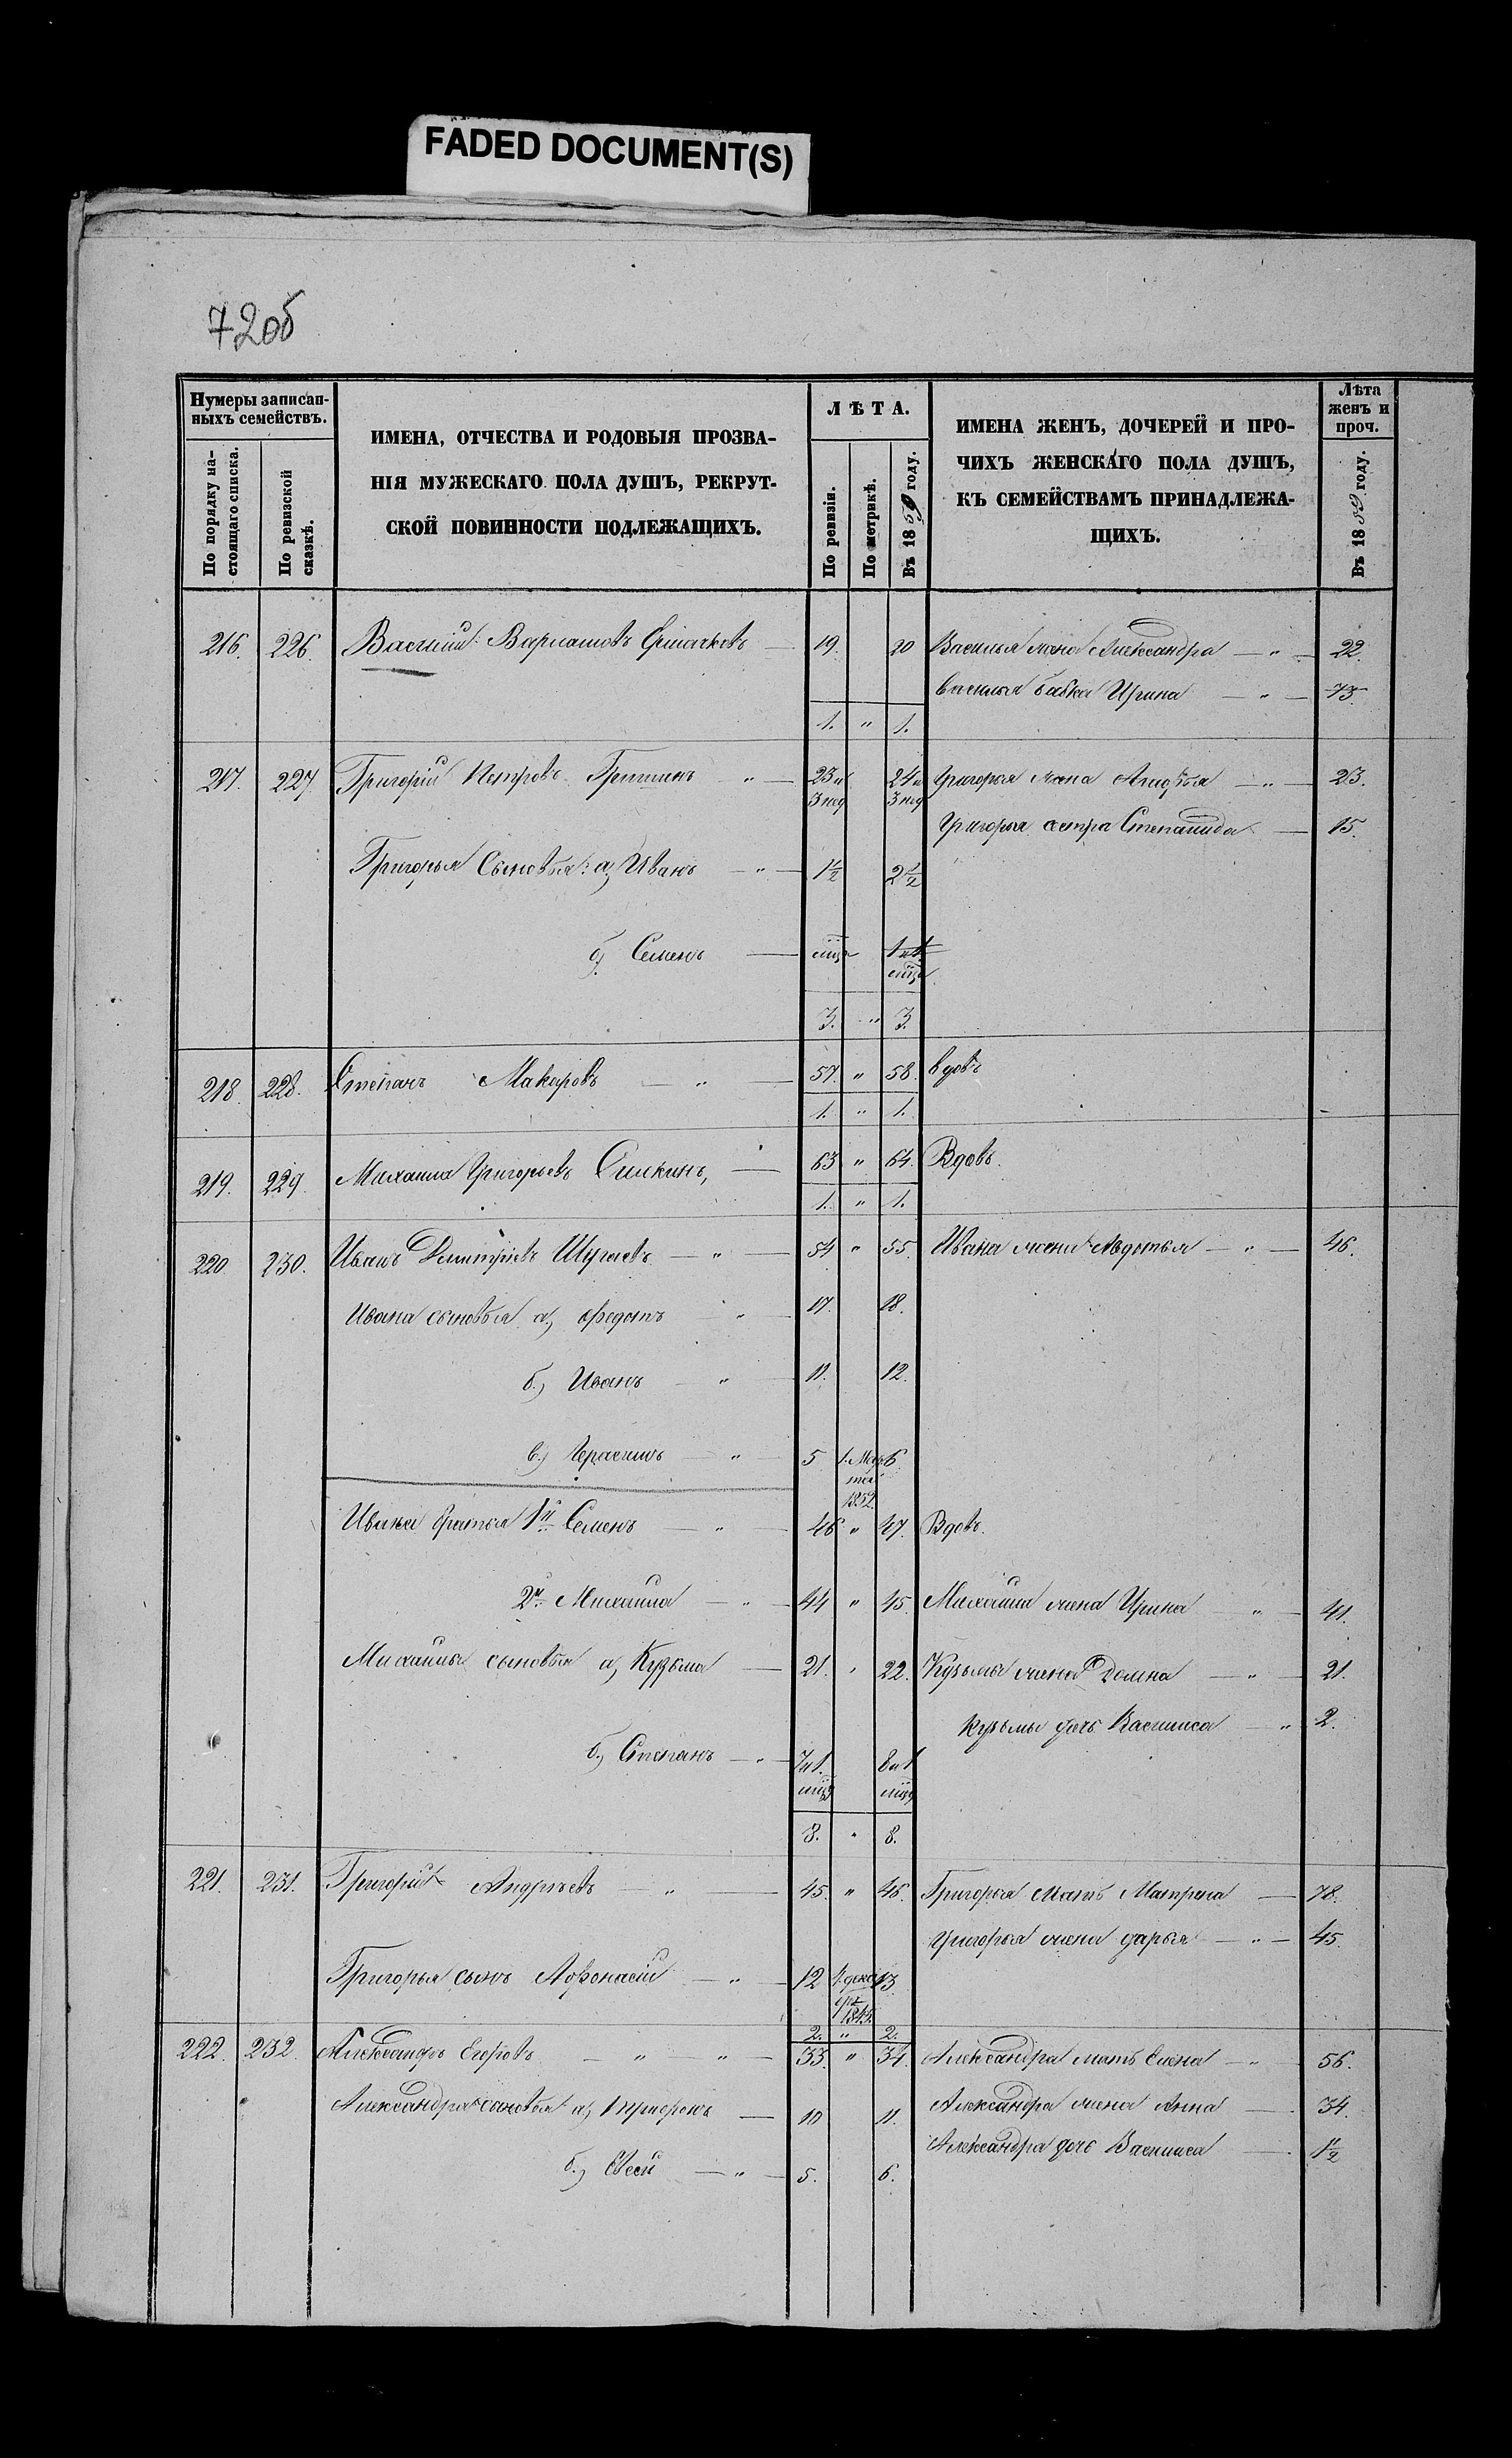 FADED DOCUMENT(S)
720б
Нумеры записан-
ныхъ семействъ.
По порядку на-
стоящаго списка.
По ревизской
сказкѣ.
ИМЕНА, ОТЧЕСТВА И РОДОВЫЯ ПРОЗВА-
НІЯ МУЖЕСКАГО ПОЛА ДУШЪ, РЕКРУТ-
СКОЙ ПОВИННОСТИ ПОДЛЕЖАЩИХЪ.
ЛѢТА.
По ревизіи.
По метрикѣ.
Въ 1859 году.
ИМЕНА ЖЕНЪ, ДОЧЕРЕЙ И ПРО-
ЧИХЪ ЖЕНСКАГО ПОЛА ДУШЪ,
КЪ СЕМЕЙСТВАМЪ ПРИНАДЛЕЖА-
ЩИХЪ.
Лѣта
женъ и
проч.
Въ 1859 году.
216. 226. Василій Варламовъ — 19. 20 Василья жена Александра — „ — 22.
Василья бабка Ирина — „ — 73.
1. „ 1.
217. 227. Григорій Петровъ Гришинъ „ — 23 и 24 и Григорья жена — „ — 23.
3 нед 3 нед
Григорья сестра Степанида — 15.
Григорья Сыновья: а) Иванъ — „ — 1½ 2½
б) Семенъ — мѣся 1 и 1
мѣся
3. „ 3.
218. 228. Степанъ Макаровъ — „ — 57. „ 58. вдовъ
1. „ 1.
219. 229. Михаила Григорьевъ Силкинъ, — 63 „ 64. Вдовъ.
1. „ 1.
220. 230. Иванъ Дмитріевъ — „ — 54 „ 55. Ивана жена Авдотья — „ — 46.
Ивана сыновья а) Федотъ — „ — 17. 18.
б.) Иванъ — „ — 11. 12.
в.) Герасимъ — „ — 5 1. Мар 6.
та
1852.
Ивана братья 1й Семенъ — „ — 46 „ 47. Вдовъ.
2й Михаила — „ — 44 „ 45. Михаилы жена Ирина — „ — 41.
Михаилы сыновья а) Кузьма — 21. „ 22. Кузьмы жена Домна — „ — 21.
Кузьмы дочь Васелиса — „ 2.
б.) Степанъ — „ — 7 и 1. 8 и 1
мѣся мѣся
8. „ 8.
221. 231. Григорій Андреевъ — „ — 45. „ 46. Григорья мать Матрена — 78.
Григорья жена дарья — „ — 45.
Григорья сынъ Афонасій — „ — 12 4. дека 13
бря
1845.
2. „ 2.
222. 232. Александръ Егоровъ — „ — „ — 33. „ 34. Александра мать Елена — „ 56.
Александра сыновья а) — 10 11. Александра жена Анна — 34.
Александра дочь Васелиса — 1½
б.) — „ — 5. 6.